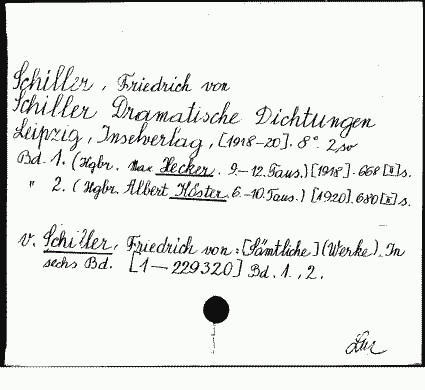 Schiller, Friedrich von
Schiller Dramatische Dichtungen
Leipzig, Inselverlag, [1918-20]. 8°. 2
Bd. 1. (Hgbr. Max Hecker. 9.-12. Taus.) [1918]. 668 [II] s.
" 2. (Hgbr. Albert Köster. 6.-10. Taus.) [1920]. 680 [II] s.
v. Schiller, Friedrich von: [Sämtliche] (Werke). In
sechs Bd. [1-229320] Bd. 1., 2.